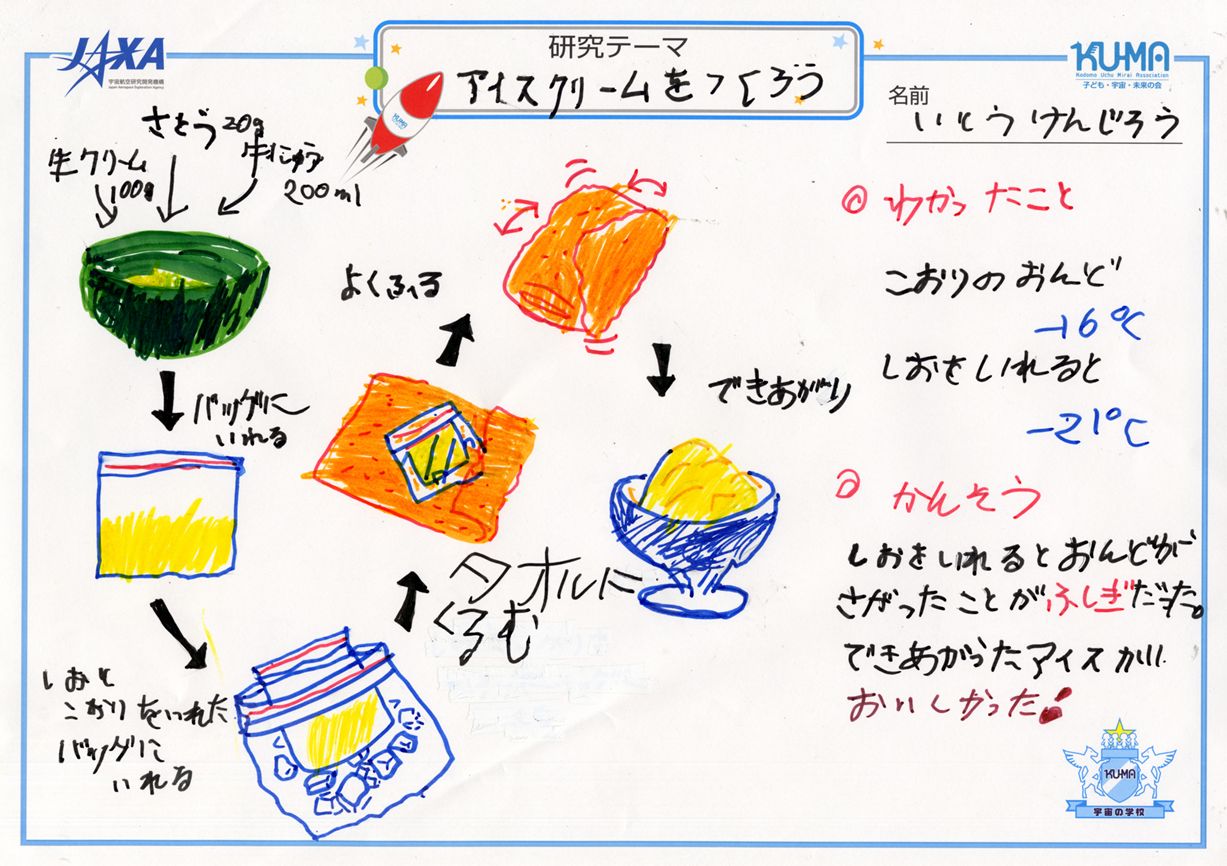 JAXA
宇宙航空研究開発機構
Japan Aerospace Exploration Agency
研究テーマ
アイスクリームをつくろう
KUMA
Kodomo Uchu Mirai Association
子ども・宇宙・未来の会
名前
いとうけんじろう
KUMA
さとう20g
生クリーム
100g
牛にゅう
200ml
バッグに
いれる
しおと
こおりをいれた
バッグに
いれる
タオルに
くるむ
よくふる
できあがり
◎わかったこと
こおりのおんど
-16℃
しおをいれると
-21℃
◎かんそう
しおをいれるとおんどが
さがったことがふしぎだった。
できあがったアイスが
おいしかった!
KUMA
宇宙の学校